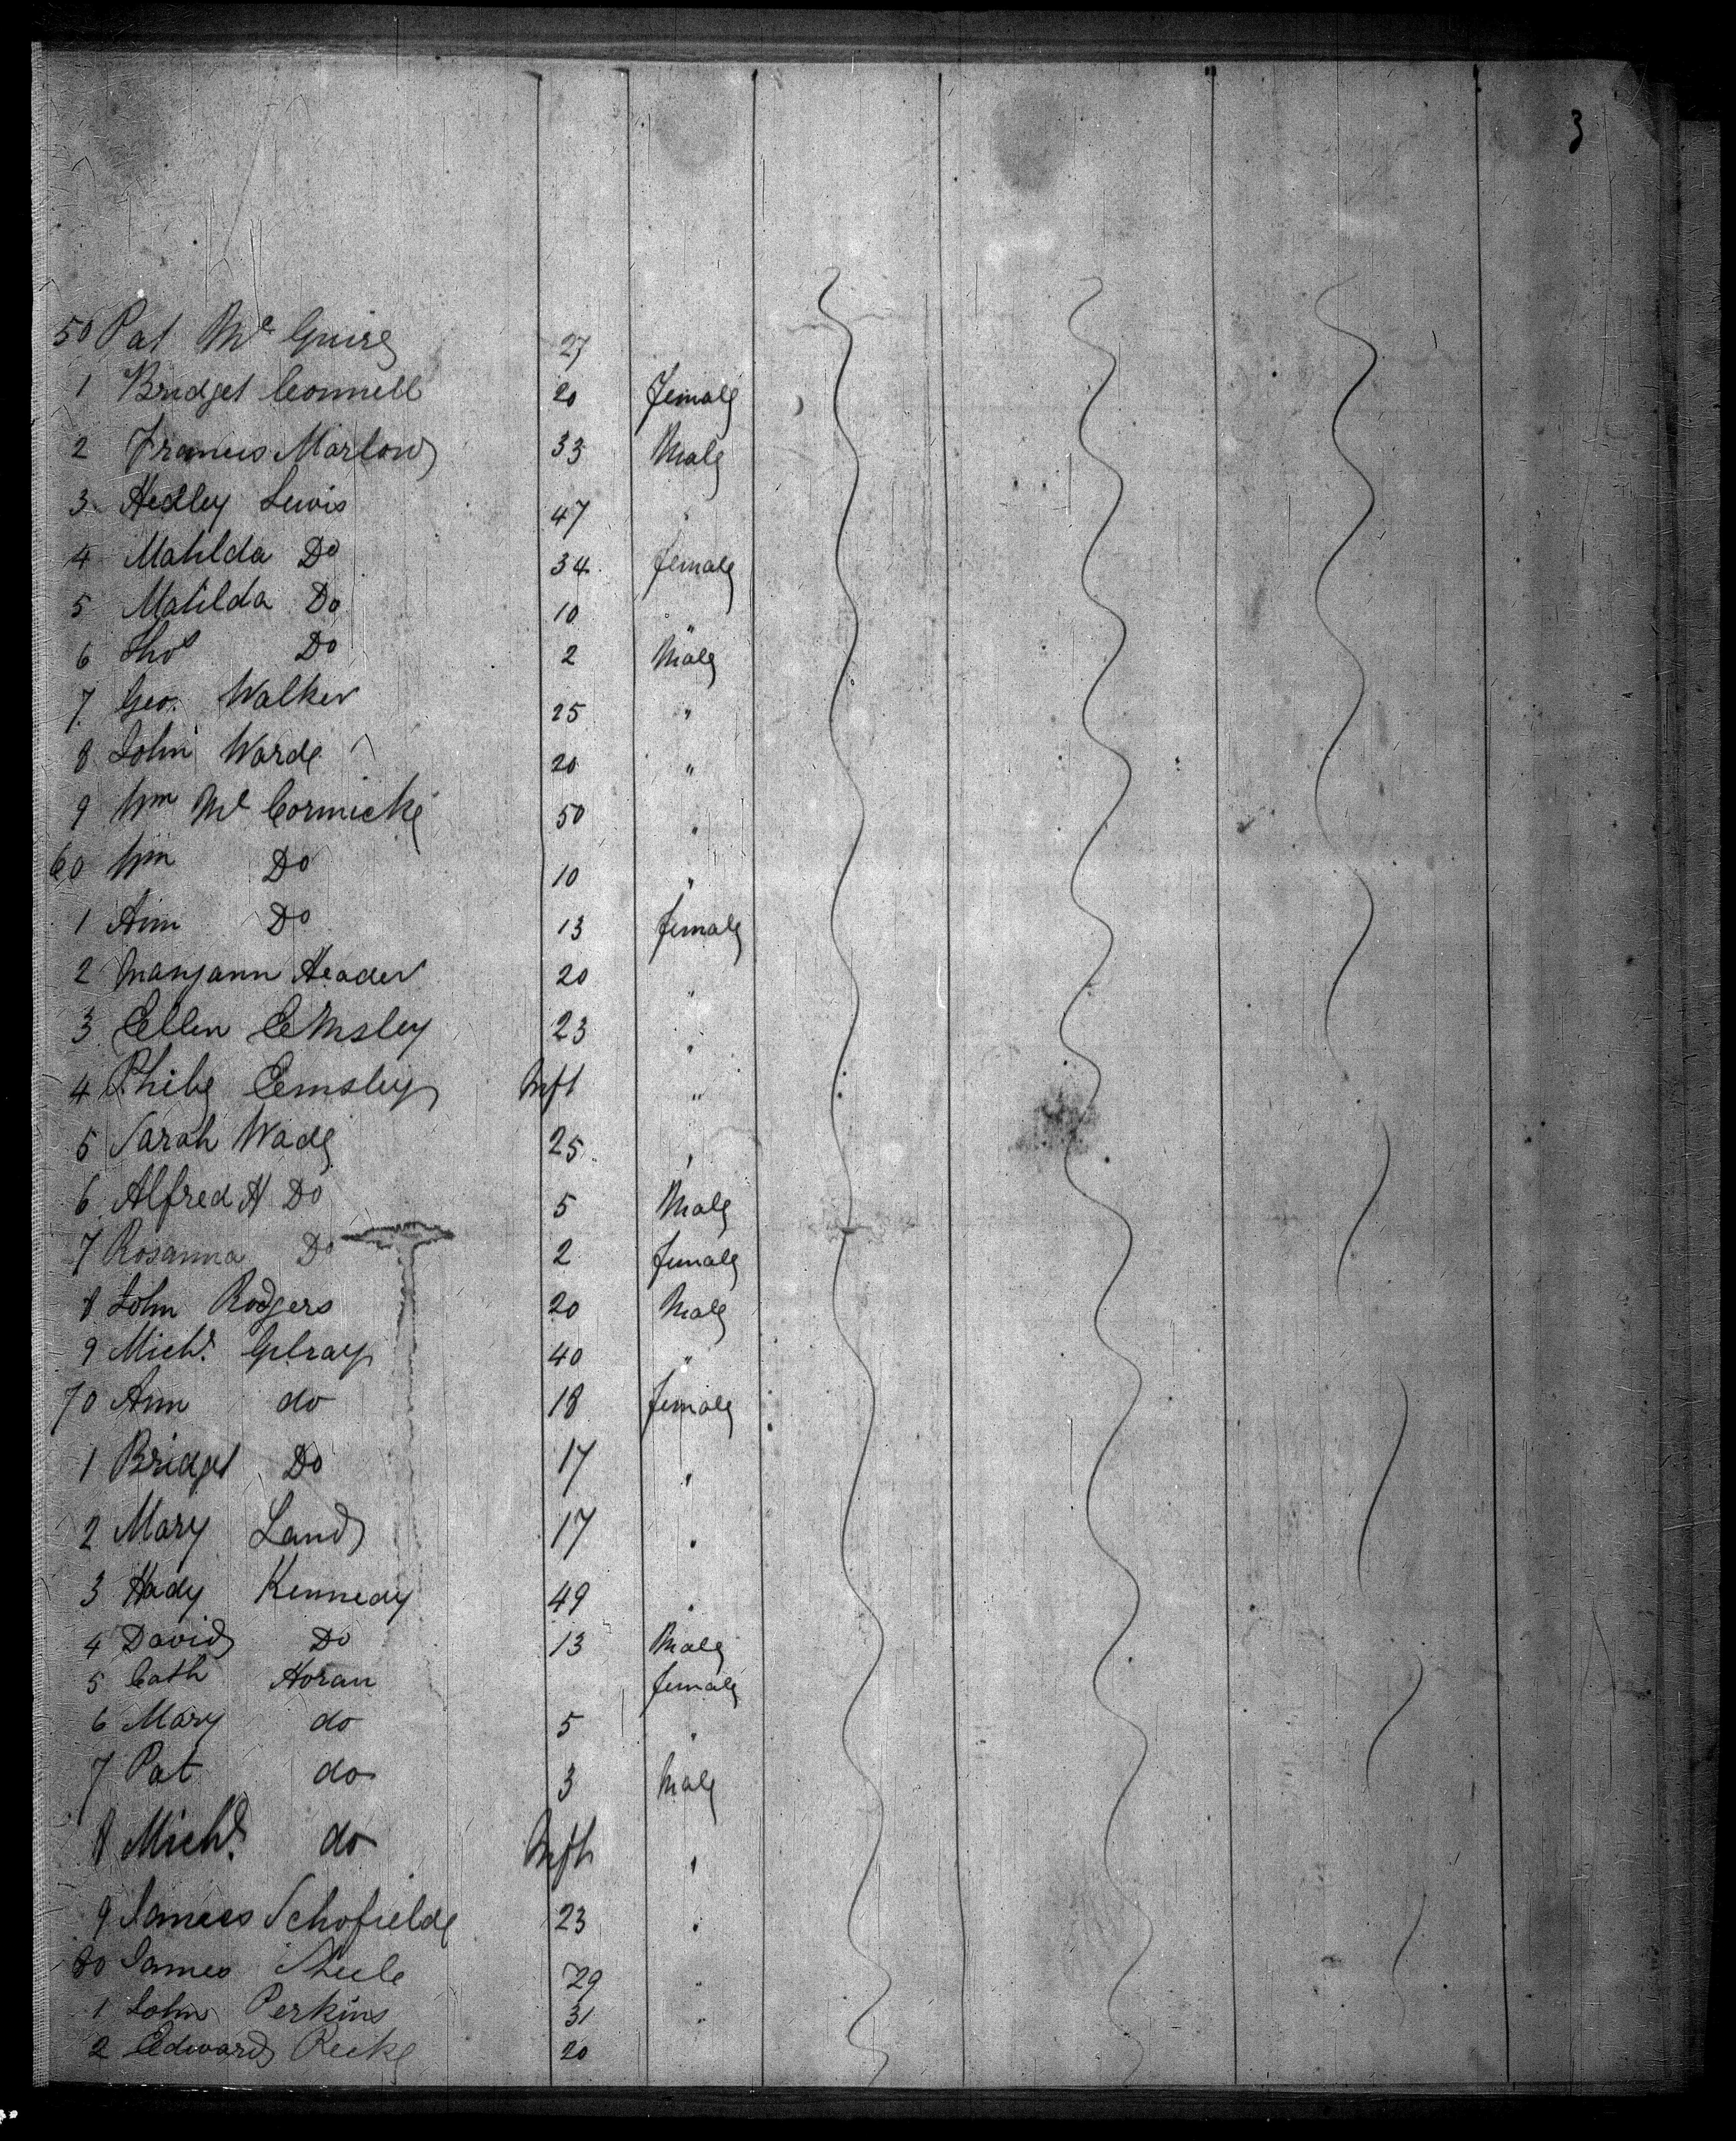 3
50 Pat Mc Guire 27
1 Bridget Connell 20 female
2 Francis Marlow 33 Male
3 Hedley Lewis 47 "
4 Matilda Do 34 female
5 Matilda Do 10 "
6 Thos Do 2 Male
7 Geo. Walker 25 "
8 John Warde 20 "
9 Wm Mc Cormicke 50 "
60 Wm Do 10 "
1 Ann Do 13 female
2 Maryann Header 20 "
3 Ellen Emsley 23 "
4 Phibe Emsley Inft "
5 Sarah Wade 25 "
6 Alfred H Do 5 Male
7 Rosanna Do 2 female
8 John Rodgers 20 Male
9 Michl. Gilray 40 "
70 Ann do 18 female
1 Bridget Do 17 "
2 Mary Land 17 "
3 Kennedy 49 "
4 David Do 13 Male
5 Cath Horan female
6 Mary do 5 "
7 Pat do 3 Male
8 Michl. do Inft "
9 James Schofielde 23 "
80 James Steele 29 "
1 John Perkins 31 "
2 Edward 20